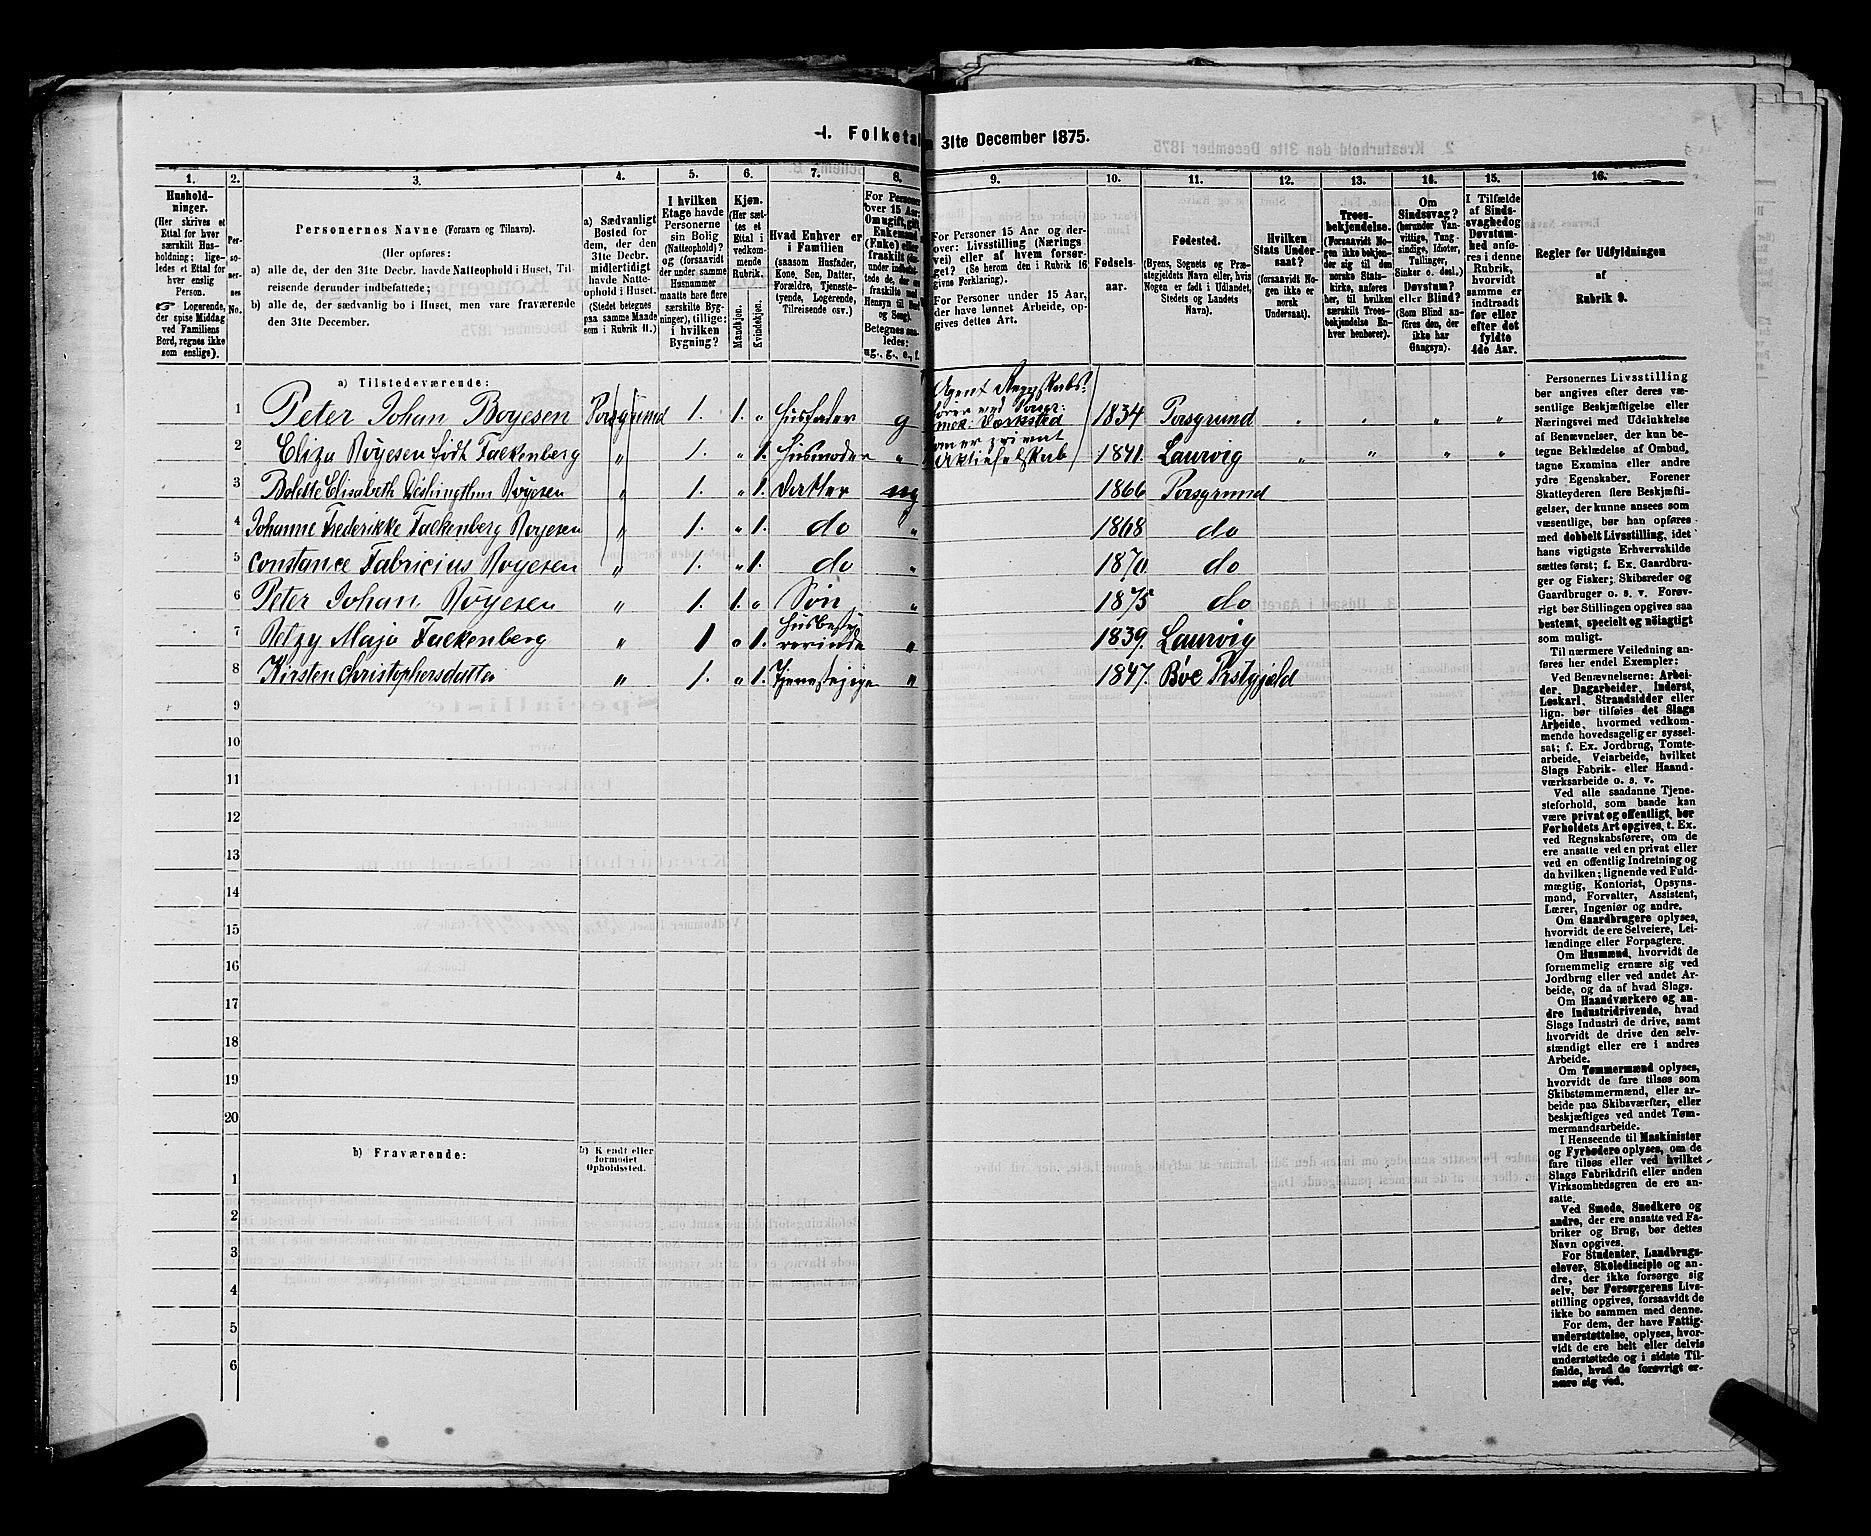 1. Folketal
31te December 1875.
1. 2. 3. 4. 5. 6. 7. 8. 9. 10. 11. 12. 13. 14. 15. 16.
Hushold-
ninger.
(Her skrives et
Ettal for hver
særskilt Hus-
holdning; lige-
ledes et Ettal for
hver enslig
Person.
☞ Logerende,
der spise Middag
ved Familiens
Bord, regnes ikke
som enslige).
Per-
so-
ner-
nes
No.
Personernes Navne (Fornavn og Tilnavn).
(Her opføres:
a) alle de, der den 31te Decbr. havde Natteophold i Huset, Til-
reisende derunder indbefattede;
b) alle de, der sædvanlig bo i Huset, men vare fraværende
den 31te December.
a) Sædvanligt
Bosted for
dem, der den
31te Decbr.
midlertidigt
havde Natte-
ophold i Huset.
(Stedet betegnes
paa samme Maade
som i Rubrik 11.)
I hvilken
Etage havde
Personerne
sin Bolig
(Natteophold)?
og (forsaavidt
der under samme
Husnummer
maatte høre flere
særskilte Byg-
ninger), tillige:
i hvilken
Bygning?
Kjøn.
(Her sæt-
tes et
Ettal i
vedkom-
mende
Rubrik.
Mandkjøn.
Kvindekjøn.
Hvad Enhver er
i Familien
(saasom Husfader,
Kone, Søn, Datter,
Forældre, Tjeneste-
tyende, Logerende,
Tilreisende osv.)
For Personer
over 15 Aar:
Om ugift, gift,
Enkemand
(Enke) eller
fraskilt
Betegnes saa-
ledes:
ug., g., e., f.
For Personer 15 Aar og der-
over: Livsstilling (Nærings
vei) eller af hvem forsør-
get? (Se herom den i Rubrik 16
givne Forklaring).
For Personer under 15 Aar,
der have lønnet Arbeide, op-
gives dettes Art.
Fødsels-
aar.
Fødested.
(Byens, Sognets og Præ-
stegjeldets Navn eller, hvis
Nogen er født i Udlandet,
Stedets og Landets
Navn).
Hvilken
Stats Under-
saat?
(forsaavidt No-
gen ikke er
norsk
Undersaat).
Troes-
bekjendelse.
(Forsaavidt No-
gen ikke bekjen-
der sig til den
norske Stats-
kirke, anføres
her, til hvilken
særskilt Troes-
bekjendelse En-
hver henhører).
Om
Sindssvag?
(herunder Van-
vittige, Tung-
sindige, Idioter,
Tullinger,
Sinker o. desl.)
Døvstum?
eller Blind?
(Som Blind an-
føres den, der
ikke har
Gangsyn).
I Tilfælde
af Sinds-
svaghed og
Døvstum-
hed anfø-
res i denne
Rubrik,
hvorvidt
samme er
indtraadt
før eller
efter det
fyldte
4de Aar.
Regler for Udfyldningen
af
Rubrik 9.
a) Tilstedeværende:
Agent Regnskabs-
1 Peter Johan Boyesen Porsgrund 1. 1. „ Husfader g fører ved Porsgr: mek: Værksted 1834 Porsgrund „ „ „ „
2 Eliza Boyesen født Falkenberg „ 1. „ 1. Husmoder „ som er privat Aktieselskab 1841. Laurvig „ „ „ „
3 Bolette Elisabeth Boyesen „ 1. „ 1. Datter ug 1866 Porsgrund
4 Johanne Frederikke Falkenberg Boyesen „ 1. „ 1. do „ 1868 do
5 Constance Fabricius Boyesen „ 1. „ 1. do „ 1870 do
6 Peter Johan Boyesen „ 1. 1. „ Søn „ 1875 do
7 Betzy Maja Falkenberg „ 1 „ 1. Husbesty-
rerinde „ 1839. Laurvig
8 Kirsten Christophersdatter „ 1. „ 1. Tjenestepige „ 1847. Bøe Prstgjæld
9
10
11
12
13
14
15
16
17
18
19
20
b) Fraværende:
b) Kjendt eller
formodet
Opholdssted.
1
2
3
4
5
6
Personernes Livsstilling
bør angives efter deres væ-
sentlige Beskjæftigelse eller
Næringsvei med Udelukkelse
af Benævnelser, der kun be-
tegne Beklædelse af Ombud,
tagne Examina eller andre
ydre Egenskaber. Forener
Skatteyderen flere Beskjæfti-
gelser, der kunne ansees som
væsentlige, bør han opføres
med dobbelt Livsstilling, idet
hans vigtigste Erhvervskilde
sættes først; f. Ex. Gaardbru-
ger og Fisker; Skibsreder og
Gaardbruger o. s. v. Forøv-
rigt bør Stillingen opgives saa
bestemt, specielt og nöiagtigt
som muligt.
Til nærmere Veiledning an-
føres her endel Exempler:
Ved Benævnelserne: Arbei-
der, Dagarbeider, Inderst,
Løskarl, Strandsidder eller
lign. bør tilføies det Slags
Arbeide, hvormed vedkom-
mende hovedsagelig er syssel-
sat; f. Ex. Jordbrug, Tomte-
arbeide, Veiarbeide, hvilket
Slags Fabrik- eller Haand-
værksarbeide o. s. v.
Ved alle saadanne Tjene-
steforhold, som baade kan
være privat og offentligt, bør
Forholdets Art opgives, t. Ex.
ved Regnskabsførere, om de
ere ansatte ved en privat eller
ved en offentlig Indretning og
da hvilken; lignende ved Fuld-
mægtig, Kontorist, Opsyns-
mand, Forvalter, Assistent,
Lærer, Ingeniør og andre.
Om Gaardbrugere oplyses,
hvorvidt de ere Selveiere, Lei-
lændinge eller Forpagtere.
Om Husmænd, hvorvidt de
fornemmelig ernære sig ved
Jordbrug eller ved andet Ar-
beide, og da af hvad Slags.
Om Haandværkere og an-
dre Industridrivende, hvad
Slags Industri de drive, samt
hvorvidt de drive den selv-
stændigt eller ere i andres
Arbeide.
Om Tømmermænd oplyses,
hvorvidt de fare tilsøs som
Skibstømmermænd, eller ar-
beide paa Skibsværfter, eller
beskjæftiges ved andet Tøm-
mermandsarbeide.
I Henseende til Maskinister
og Fyrbødere oplyses, om de
fare tilsøs eller ved hvilket
Slags Fabrikdrift eller anden
Virksomhedsgren de ere an-
satte.
Ved Smede, Snedkere og
andre, der ere ansatte ved Fa-
briker og Brug, bør dettes
Navn opgives.
For Studenter, Landbrugs-
elever, Skoledisciple og an-
dre, der ikke forsørge sig
selv, bør Forsørgerens Livs-
stilling opgives, forsaavidt de
ikke bo sammen med denne.
For dem, der have Fattig-
understøttelse, oplyses, hvor-
vidt de ere helt eller delvis
understøttede og i sidste Til-
fælde, hvad de forøvrigt er-
nære sig ved.